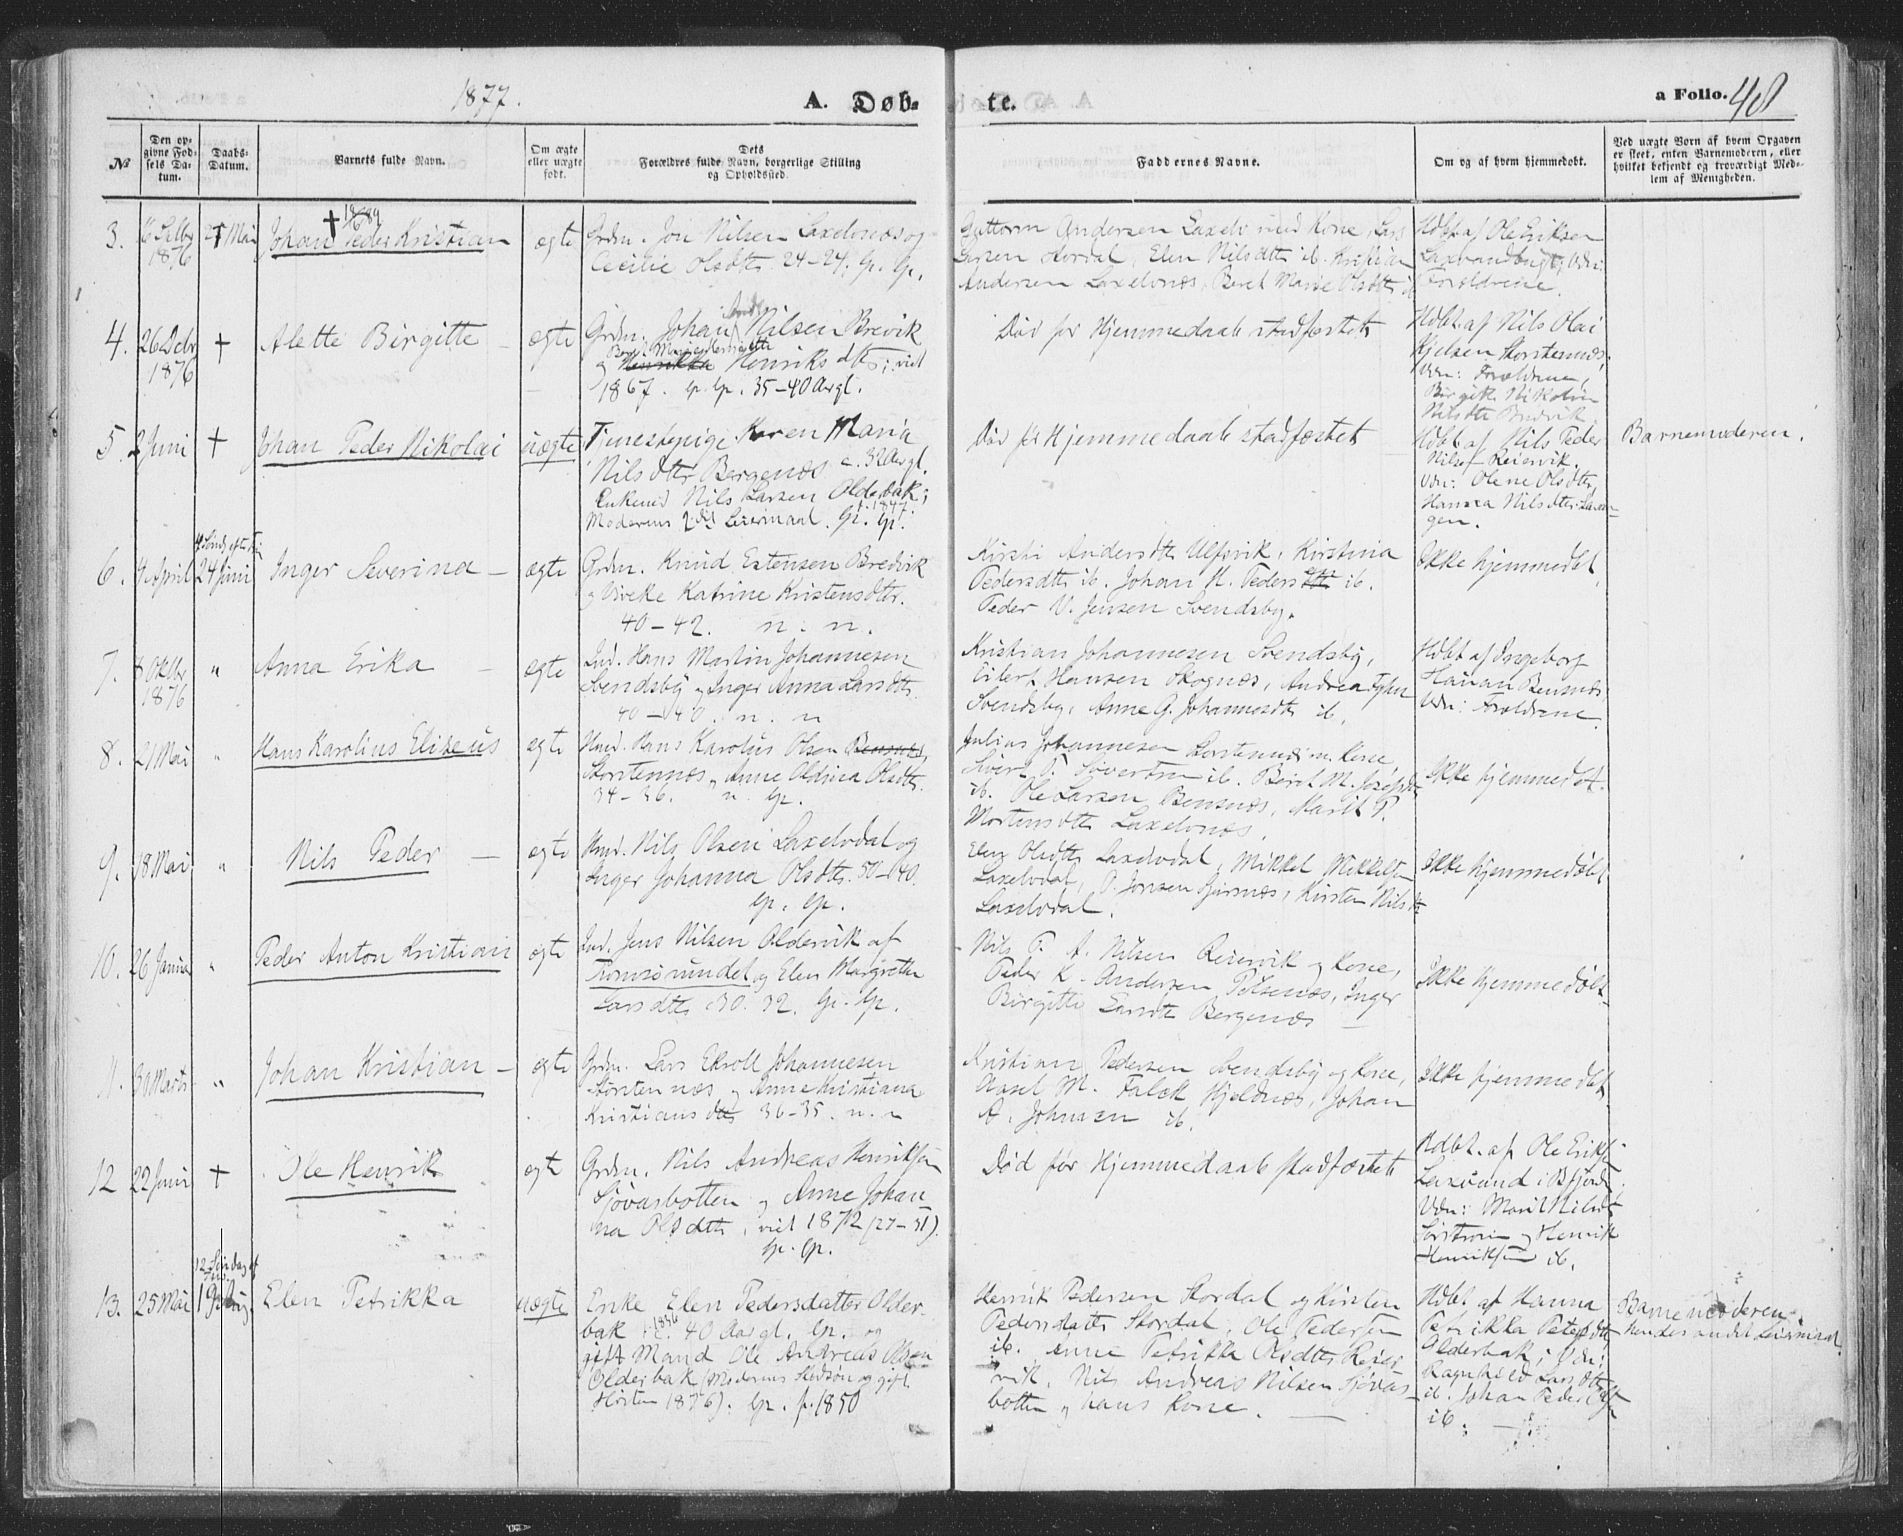 1877.
A. Døb-
te.
a Folio. 48
№
Den op-
givne Fød-
sels Da-
tum.
Daabs-
Datum.
Barnets fulde Navn.
Om ægte
eller uægte
født.
Dets
Forældres fulde Navn, borgerlige Stilling
og Opholdssted.
Faddernes Navne.
Om og af hvem hjemmedøbt.
Ved uægte Børn af hvem Opgaven
er skeet, enten Barnemoderen, eller
hvilket bekjendt og troværdigt Med-
lem af Menigheden.
3.
1876
Mai
Johan Peder Kristian
ægte
Grdm. Jon Nilsen Laxelvnæs og
Cecilie Olsdtr. 24-24. lp. lp.
Guttorm Andersen Laxelv med Kone, Lars
Larsen Stordal, Elen Nilsdtr ib. Kristian
Andersen Laxelvnæs, Beret Marie Olsdtr ib
Hdbt af Ole Eriksen
Laxvandbugt; Vdn:
Forældrene.
4.
26 Debr
1876
+
Alette Birgitte
ægte
Grdm. Johan Nilsen Brevik
Henriksdtr; viet
1867. lp. lp. 35-40 Aargl.
Død før Hjemmedaab stadfæstet
Hdbt. af Nils Olai
Kjelsen Storstennæs;
Vdn: Forældrene,
Birgitte Nikolin
Nilsdtr
5.
2 Juni
+
Johan Peder Nikolai
uægte
Tjenestepige Karen Maria
Nilsdtr Bergenæs c. 32 Aargl.
Enkemd Nils Larsen Olderbak;
Moderens 2det Leiermaal. lp. lp.
Død før Hjemmedaab stadfæstet
Hdbt af Nils Peder
Nilsen Reiervik.
Vdn: Olene Olsdtr,
Hansea Nilsdtr Lavan-
gen.
Barnemoderen.
6.
9 April
4 Sønd. efter Tri
24 Juni
Inger Severina
ægte
Grdm. Knud Estensen Bredvik
og Viveke Katrine Kristensdtr.
40-42. n. n.
Kirsti Andersdtr Ulfsvik, Kirstina
Pedersdtr ib. Johan H. Pedersen ib.
Peder V. Jensen Svendsby.
Ikke hjemmedbt
7.
8 Oktbr
1876
"
Anna Erika
ægte
Ind. Hans Martin Johannesen
Svendsby og Inger Anna Larsdtr.
40-40. n. n
Kristian Johannesen Svendsby,
Eilert Hansen Skognæs, Andrea
Svendsby, Anne G. Johannesdtr ib.
Hdbt af Ingeborg
Hanan Bensnæs
Vdn: Forældrene
8.
21 Mai
"
Hans Karolius Eliseus
ægte
Hmd. Hans Karolus Olsen Bensnæs,
Storstennæs og Anne Oldina Olsdtr.
34-36. n. lp.
Julius Johannesen Storstennæs m. Kone,
Sivert P. Sivertsen ib. Beret M. Josefsdtr
ib. Ole Larsen Bensnæs, Marit P.
Mortensdtr Laxelvnæs.
Ikke hjemmedbt.
9.
18 Mai
"
Nils Peder
ægte
Hmd. Nils Olsen Laxelvdal og
Inger Johanna Olsdtr. 50-40.
lp. lp.
Elen Olsdtr Laxelvdal, Mikkel Mikkelsen
Laxelvdal, P. Jonsen, Kirsten Nilsdtr
Laxelvdal.
Ikke hjemmedøbt
10.
26 Januar
"
Peder Anton Kristian
ægte
Ind. Jens Nilsen Oldervik af
Tromsøsundet og Elen Margrethe
Larsdtr 30. 32. lp. lp.
Nils P. A. Nilsen Reiervik og Kone,
Peder K. Andersen Pølsenæs, Inger
Birgitte Larsdtr Bergenæs
Ikke hjemmedøbt
11.
30 Marts
"
Johan Kristian
ægte
Grdm. Lars Ekroll Johannesen
Storstennæs og Anne Kristiana
Kristiansdtr 36-35. n. n
Kristian Pedersen Svendsby og Kone,
Axel M. Falck Hjeldnæs, Johan
A. Johnsen ib.
Ikke hjemmedbt
12
22 Juni
+
Ole Henrik
ægte
Grdm. Nils Andreas Henriksen
Sjøvasbotten og Anne Johan-
na Olsdtr, viet 1872 (27-31).
lp. lp.
Død før Hjemmedaab stadfæstet
Hdbt. af Ole Eriks.
Laxvand i Bfjord.
Vdn: Marit Nilsdt
og Henrik
Henriksen ib.
13.
25 Mai
12 Søndag ef
Trin.
19 Aug.
Elen Petrikka
uægte
Enke Elen Pedersdatter Older-
bak f. 1836 40 Aargl. lp. og
gift Mand Ole Andreas Olsen
Olderbak (Moderens Stedsøn og gift
Høsten 1876). lp. f. 1850
Henrik Pedersen Stordal og Kirsten
Pedersdatter Stordal, Ole Pedersen
ib. Anne Petrikke Olsdtr Reier-
vik. Nils Andreas Nilsen Sjøvas-
botten og hans Kone.
Hdbt af Hanna
Petrikka Petersdtr
Olderbak; Vdn:
Ragnhild Larsdtr
ib. Johan Peder Olsen
ib.
Barnemoderen.
hendes andet Leiermaal.